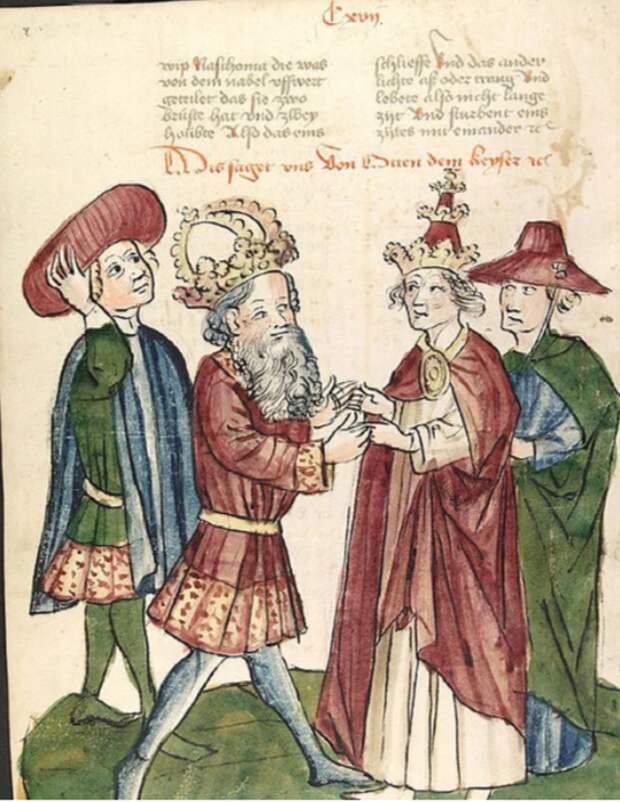 Cxvij.
wip Naschoma die was
von dem nabel uffwert
geteilet das sie zwo
brüste hat vnd zwey
hoübte Also das eins
schlieffe Vnd das ander
lichte aß oder trang Vnd
lebete also nicht lange
zijt Vnd sturbent eins
zijtes mit einander ꝛc
Dis saget vns Von Otten dem keyser ꝛc